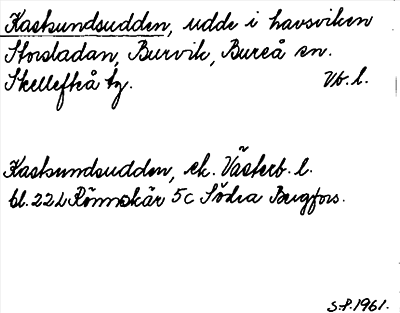 Kastsundsudden, udde i havsviken
Storsladan, Burvik, Bureå sn.
Skellefteå tg. Vb. l.
Kastsundsudden, ek. Västerb. l.
bl. 22L Rönnskär 5c Södra Bergfors.
S.P. 1961.